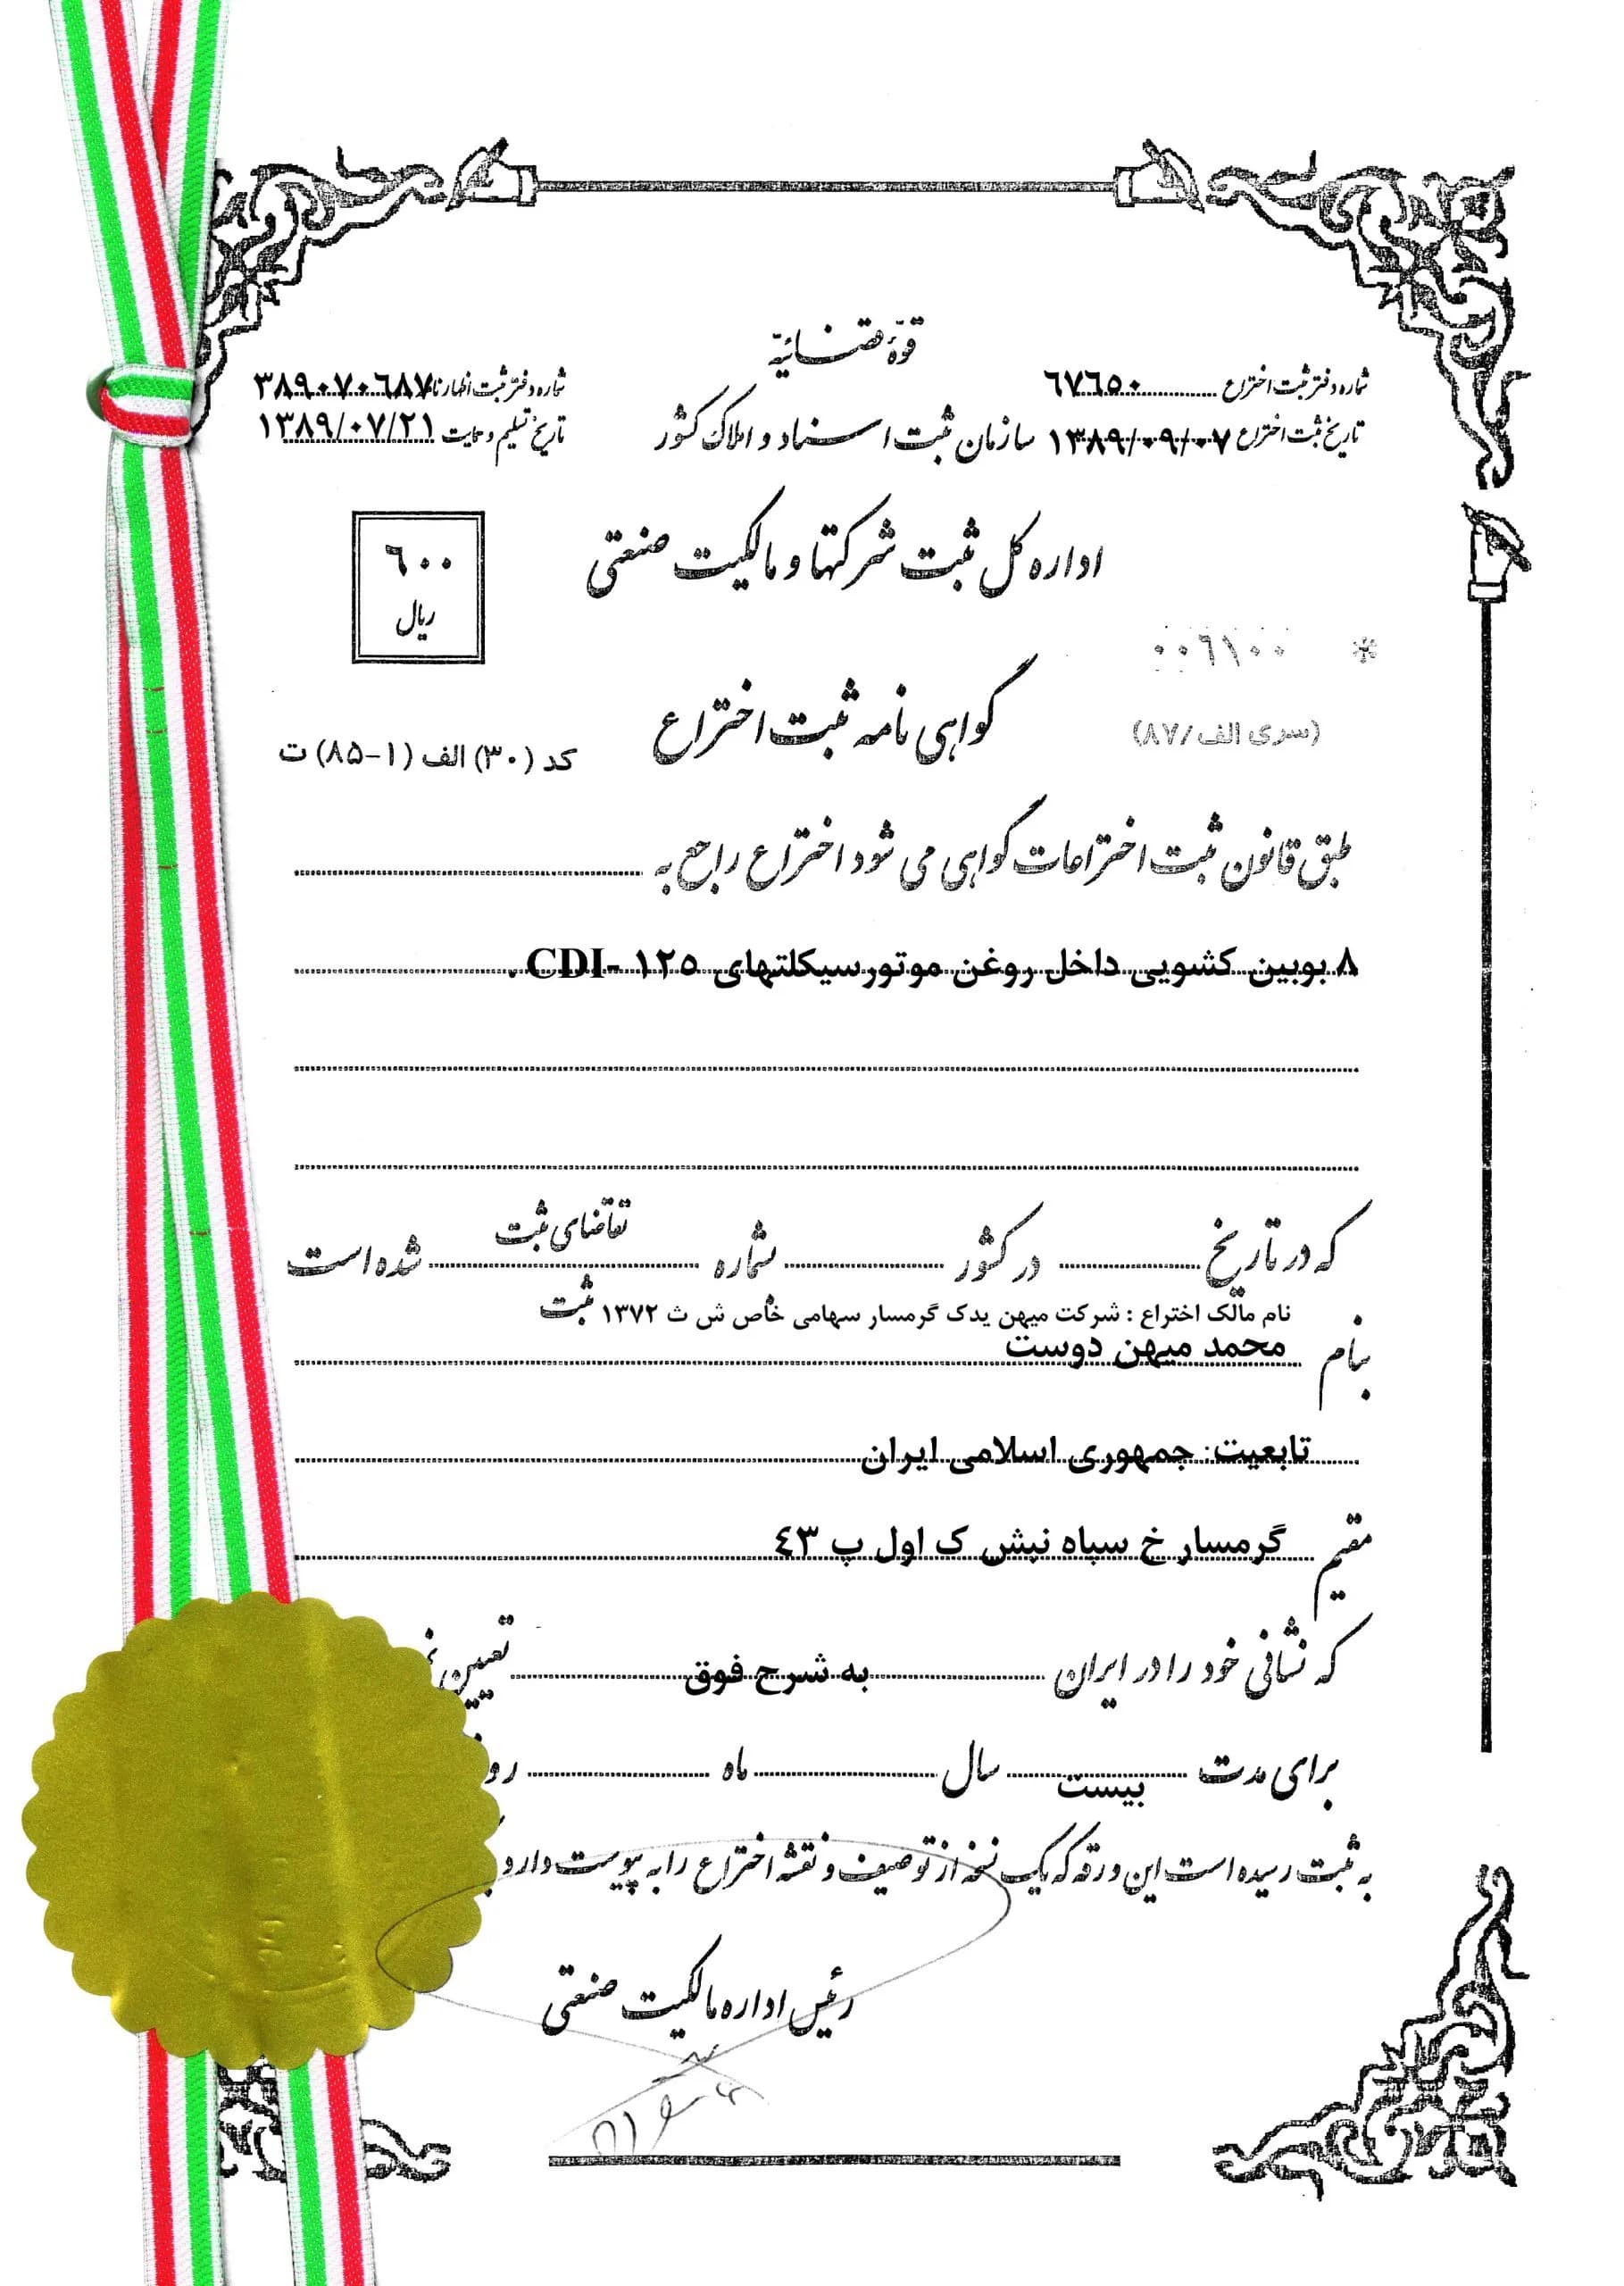 قوّهٔ قضائیّه
شماره دفتر ثبت اختراع ٦٧٦٥٠
شماره دفتر ثبت اظهارنا ٣٨٩٠٧٠٦٨٧
تاریخ ثبت اختراع ١٣٨٩/٠٩/٠٧
سازمان ثبت اسناد و املاک کشور
تاریخ تسلیم و حمایت ١٣٨٩/٠٧/٢١
اداره کل ثبت شرکتها و مالکیت صنعتی
٦٠٠
ریال
* ٠٠٦١٠٠
گواهی نامه ثبت اختراع
(سری الف/۸۷)
کد (۳۰) الف (۱-۸۵) ت
طبق قانون ثبت اختراعات گواهی می شود اختراع راجع به
٨ بوبین کشویی داخل روغن موتور سیکلتهای ١٢٥ -CDI .
که در تاریخ در کشور بشماره تقاضای ثبت شده است
نام مالک اختراع : شرکت میهن یدک گرمسار سهامی خاص ش ث ۱۳۷۲ ثبت
بنام محمد میهن دوست
تابعیت: جمهوری اسلامی ایران
مقیم گرمسار خ سپاه نبش ک اول پ ٤٣
که نشانی خود را در ایران به شرح فوق تعیین
برای مدت بیست سال ماه رو
به ثبت رسیده است این ورقه که یک نسخه از توصیف و نقشه اختراع را به پیوست دارد
رئیس اداره مالکیت صنعتی